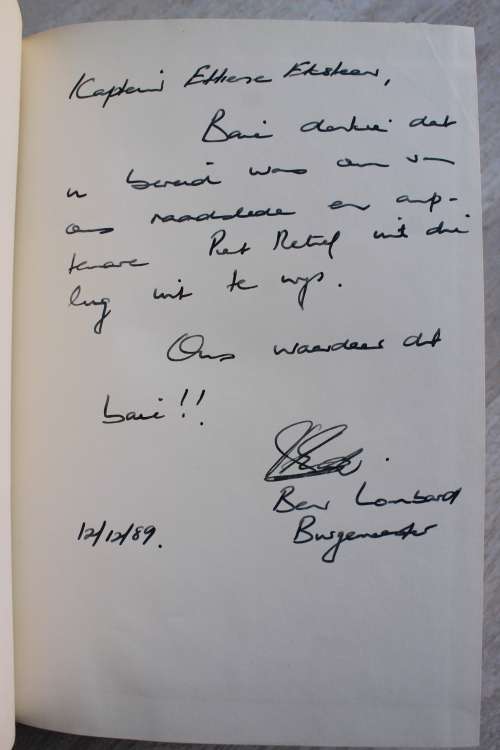 Kaptein Ettiene Eksteen,
Baie dankie dat
u bereid was om vir
ons raadslede en amp-
tenare Piet Retief uit die
lug uit te wys.
Ons waardeer dit
baie!!
Ben Lombard
Burgemeester
12/12/89.